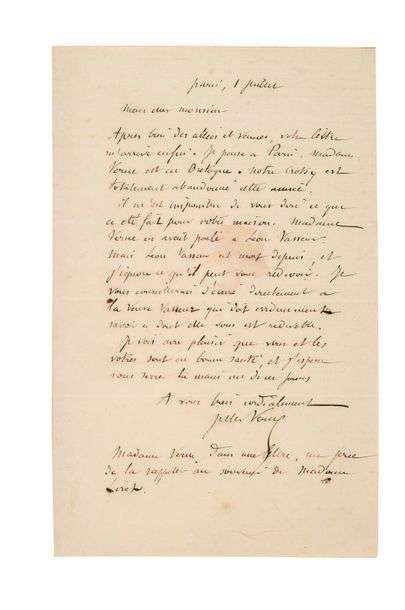 Paris, 1 juillet
Mon cher monsieur
Après bien des allées et venues, votre lettre
m'arrive enfin. Je passe à Paris. Madame
Verne est en Bretagne. Notre Crotoy est
totalement abandonné cette année.
il m'est impossible de vous dire ce que
a été fait pour votre maison. Madame
Verne en avait parlé à Léon Vasseur
Mais Léon Vasseur est mort depuis, et
j'ignore ce qu'il peut vous redevoir. Je
vous conseillerais d'écrire directement à
la veuve Vasseur qui doit évidemment
savoir ce dont elle vous est redevable.
Je vois avec plaisir que vous et les
vôtres sont en bonne santé, et j'espère
vous serrer la main un de ces jours
A vous bien cordialement
Jules Verne
Madame Verne, dans une lettre, me prie
de la rappeler au souvenir de Madame